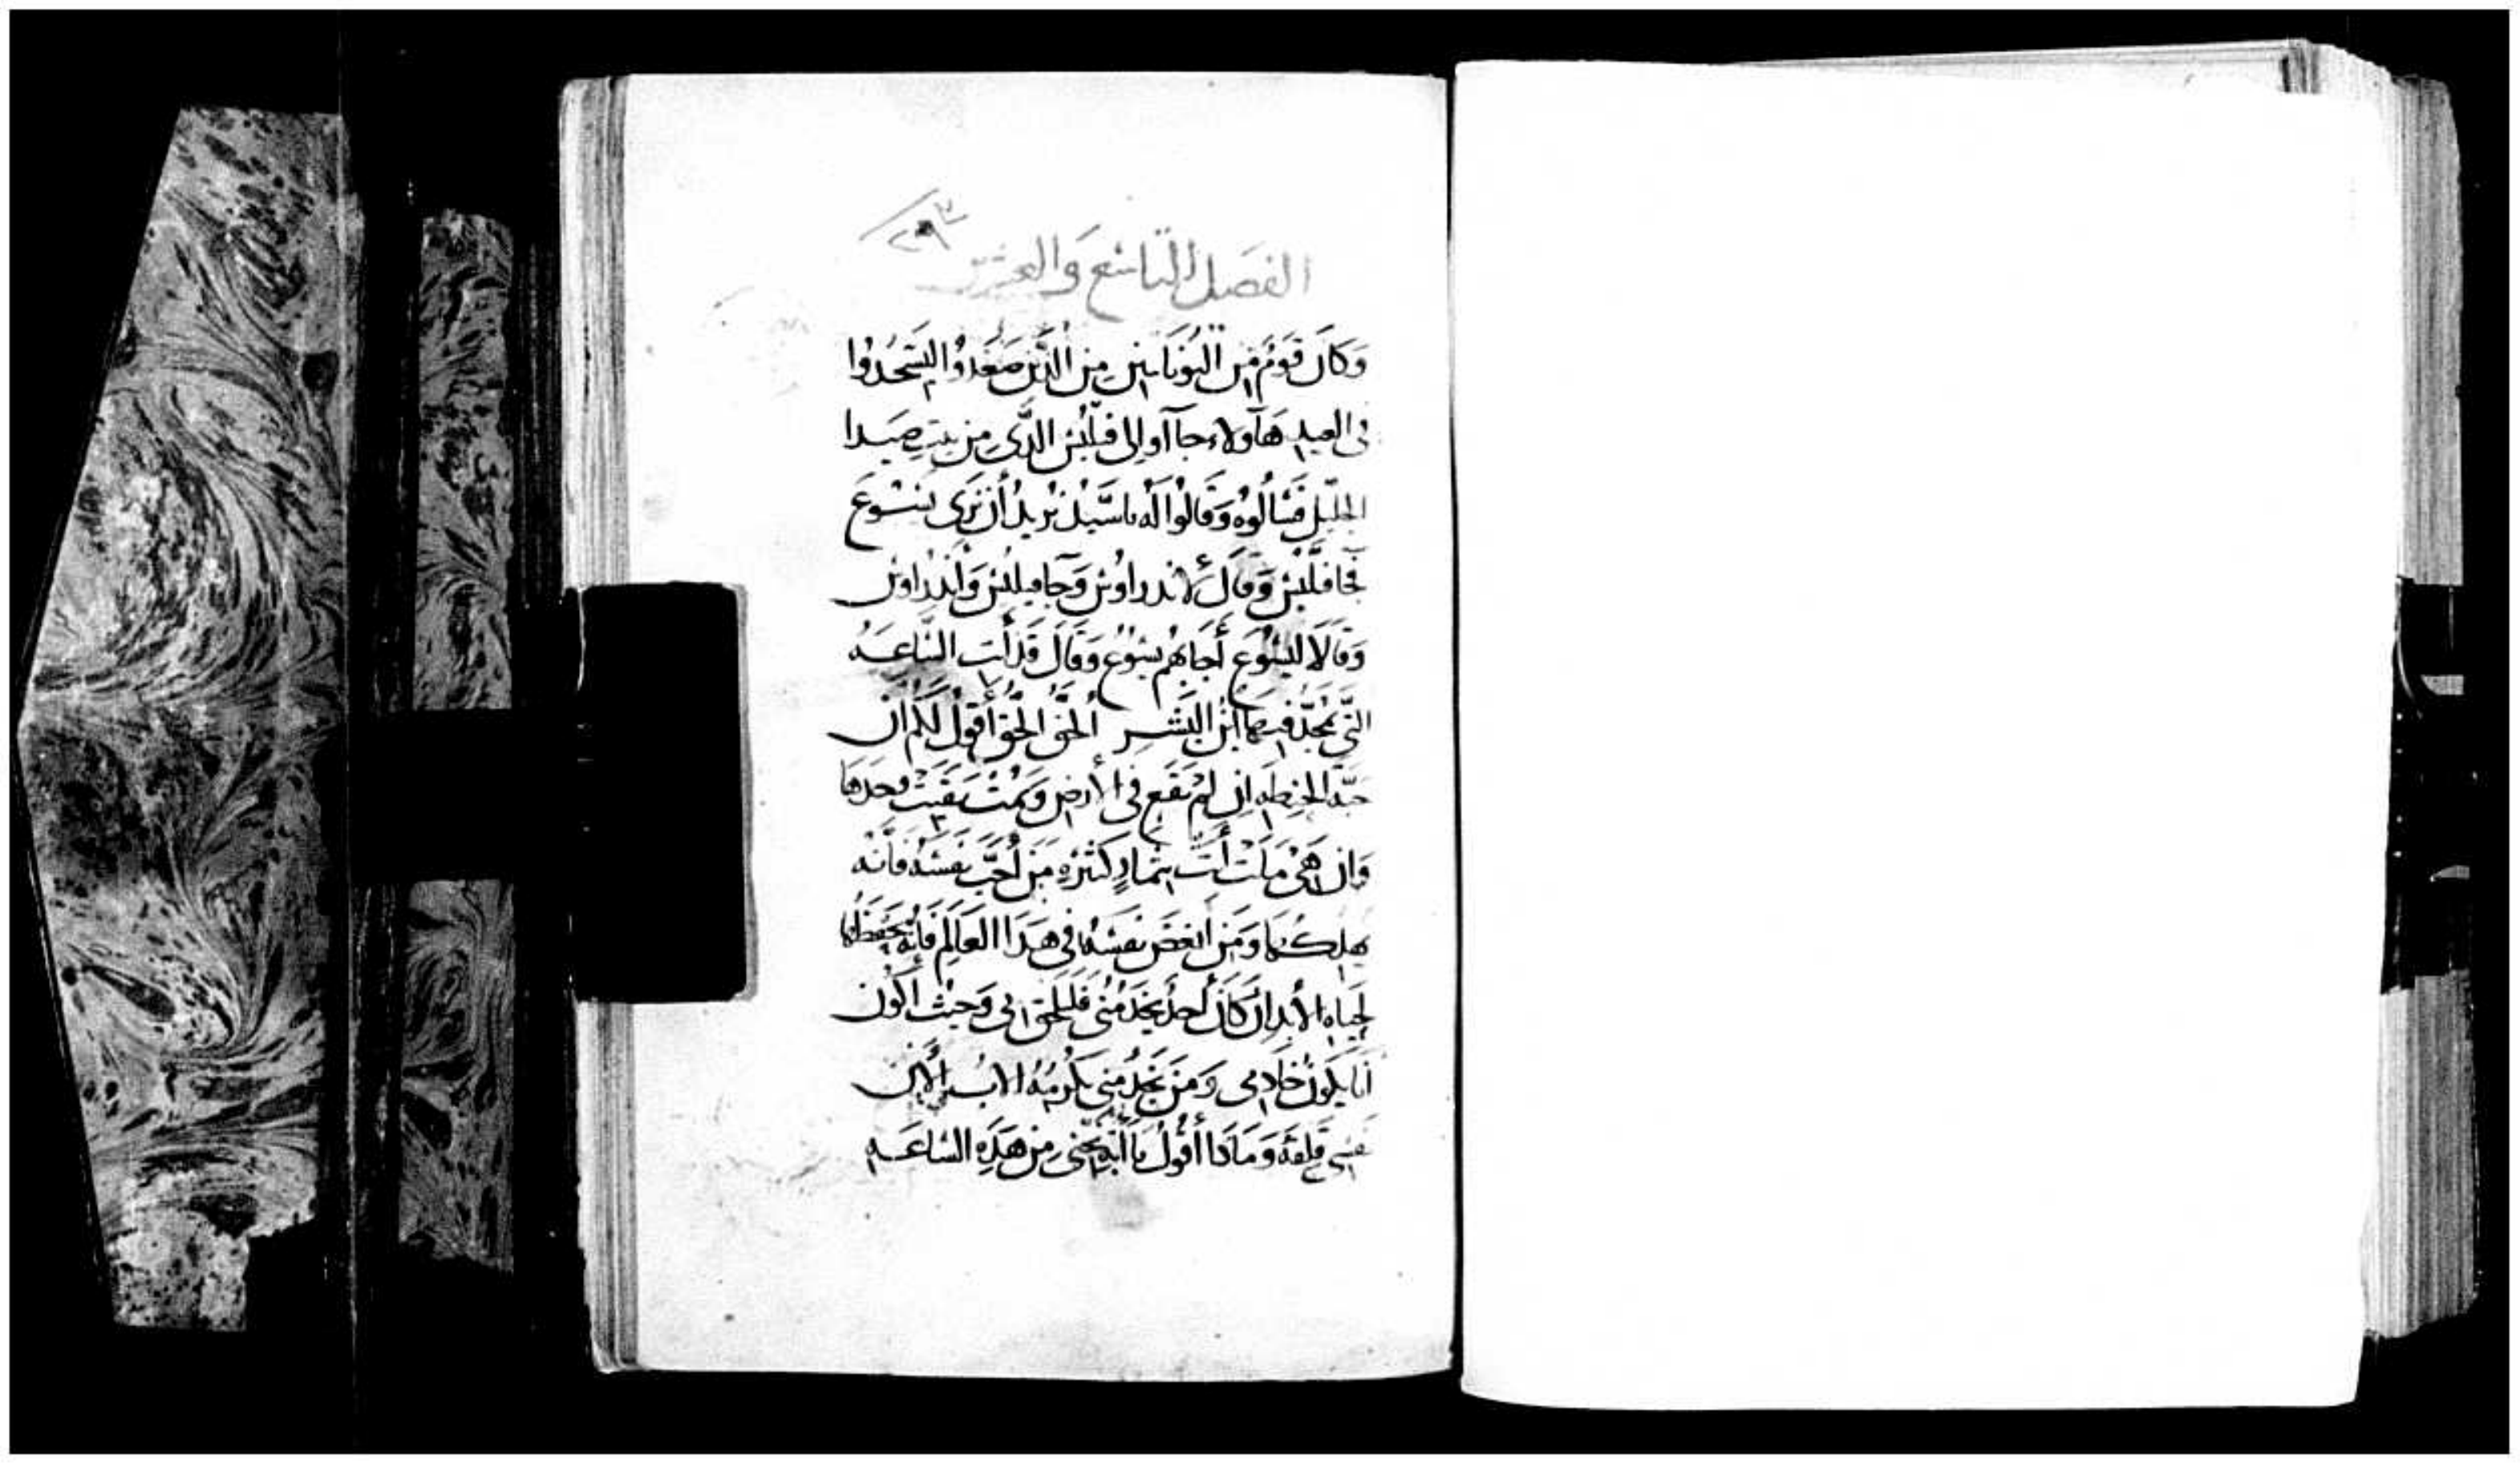 الفصل التاسع والعشرين
وَكَانَ قَومٌ مِنَ اليُونَانيين مِن الذَّين صَعَدوُا ليَسَجُدُوا
في العيد هَآولاء جآاوا الى فيلبس الذَّي مِن بيت صَيدا
الجليل فَسَالُوه وَقَالوُا لَه ياسَّيد نُريدُ أن نَرَى يَسُوع
فجا فيلبس وَقَالَ لاندراوُس وَجآ فيلبس وَاندراوس
وَقَالَا ليَسُوع أجَابهُم يسُوعُ وَقَالَ قَد أتَت السَّاعَه
التَّي يُمجَّد فيهَا ابنُ البَشَر ألحَقَّ الحَقَّ أقوُل لكم ان
حَبَّة الحِنطه ان لم تقَع في الأرض وَتمُت بَقيَت وحدها
وَان هَيَ مَاتَت أتَت بثمارٍ كَثيرَه مَن أحَبَّ نفسَهُ فَأنَّه
يهلكهَا وَمَن ابغَض نَفسَهُ في هَذا العَالم فَانَّهُ يَحفَظُهَا
لحَياه الأبد ان كَانَ أحدٌ يَخدمُني فَليلحَق بي وَحيثُ اكُون
أنَا يَكوُن خَادمى وَمَن يَخدُمني يكرمُهُ الاب الأن
نَفسي قَلِقَة وَمَاذَا أقُولُ يَا أبَه نجّني مِن هَذِه السَاعَه